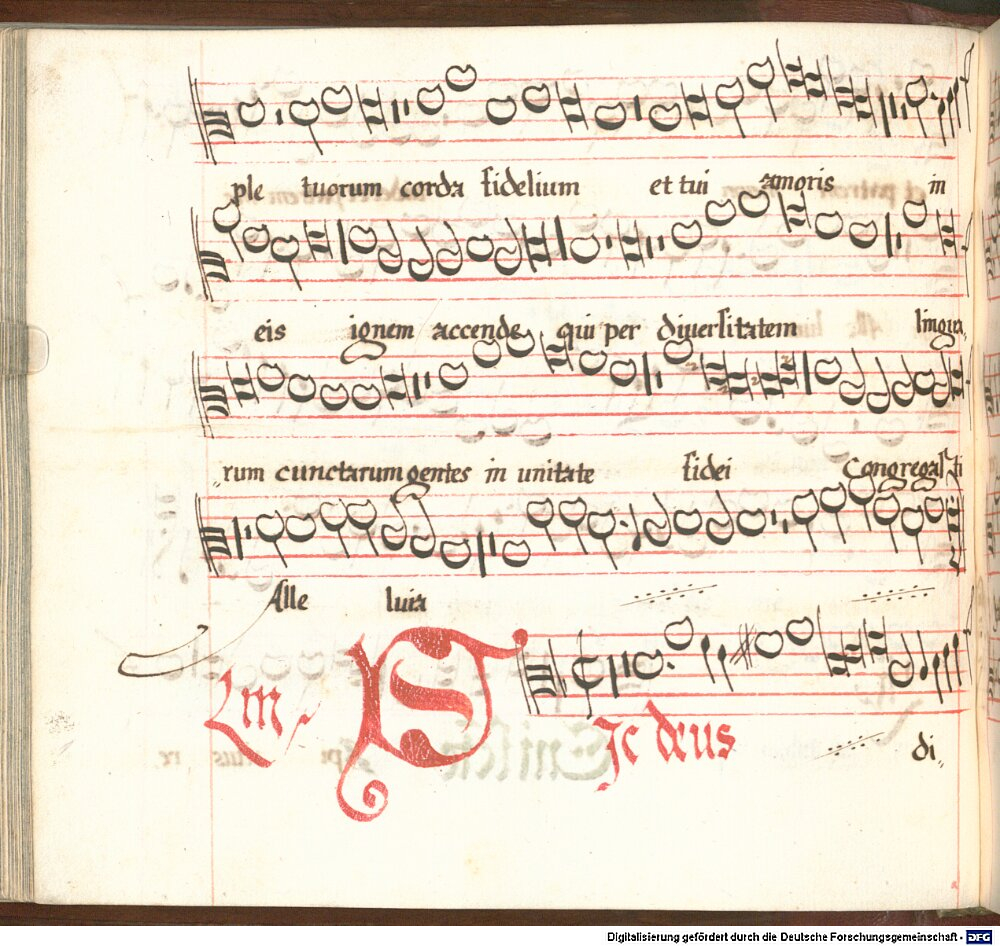 ple tuorum corda fidelium et tui amoris in
eis ignem accende qui per diuersitatem lingua,,
,,rum cunctarum gentes in unitate fidei Congregasti
Alle luia
S
Ic deus
di,,
Digitalisierung gefördert durch die Deutsche Forschungsgemeinschaft - DFG